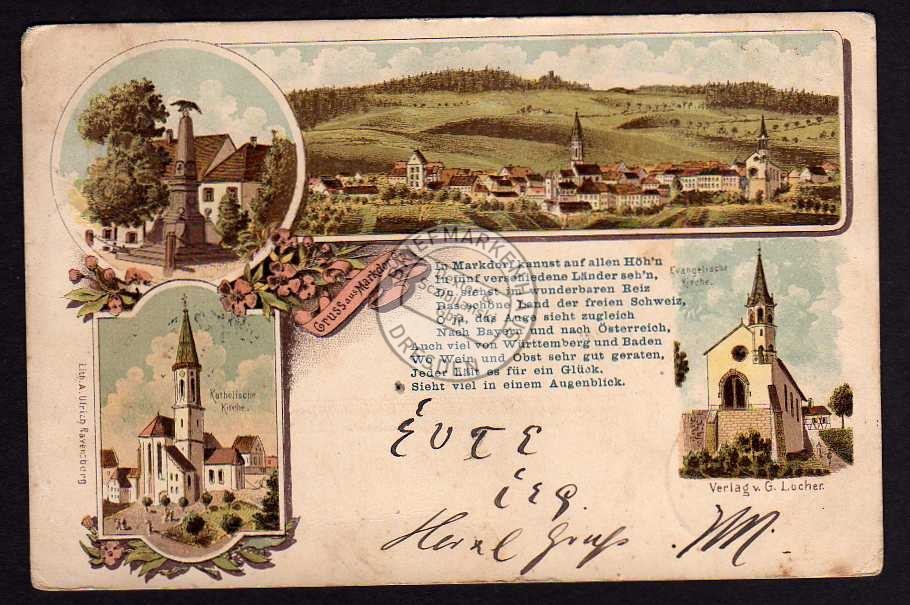 Gruss aus Markdorf
In Markdorf kannst auf allen Höh'n
In fünf verschiedene Länder seh'n,
Du siehst im wunderbaren Reiz
Das schöne Land der freien Schweiz,
das Auge sieht zugleich
Nach Bayern und nach Österreich,
Auch viel von Württemberg und Baden
Wo Wein und Obst sehr gut geraten,
Jeder hält es für ein Glück,
Sieht viel in einem Augenblick.
Evangelische
Kirche.
Katholische
Kirche.
Verlag v. G. Locher.
Lith. A. Ulrich Ravensberg
BRIEFMARKEN
DRESDEN
Herzl Gruß